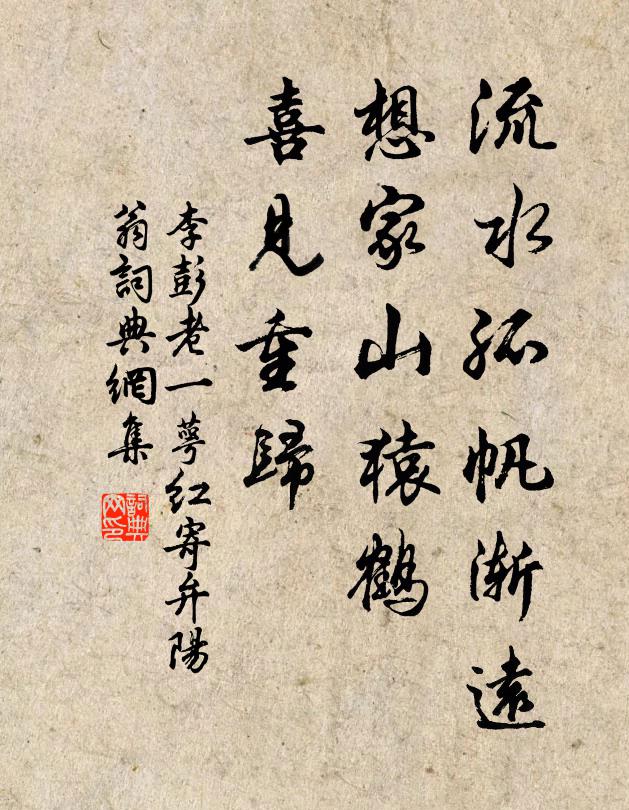 流水孤帆渐遠
想家山猿鶴
喜見重歸
李彭老一萼红寄弁陽
翁詞典網集
詞典网印